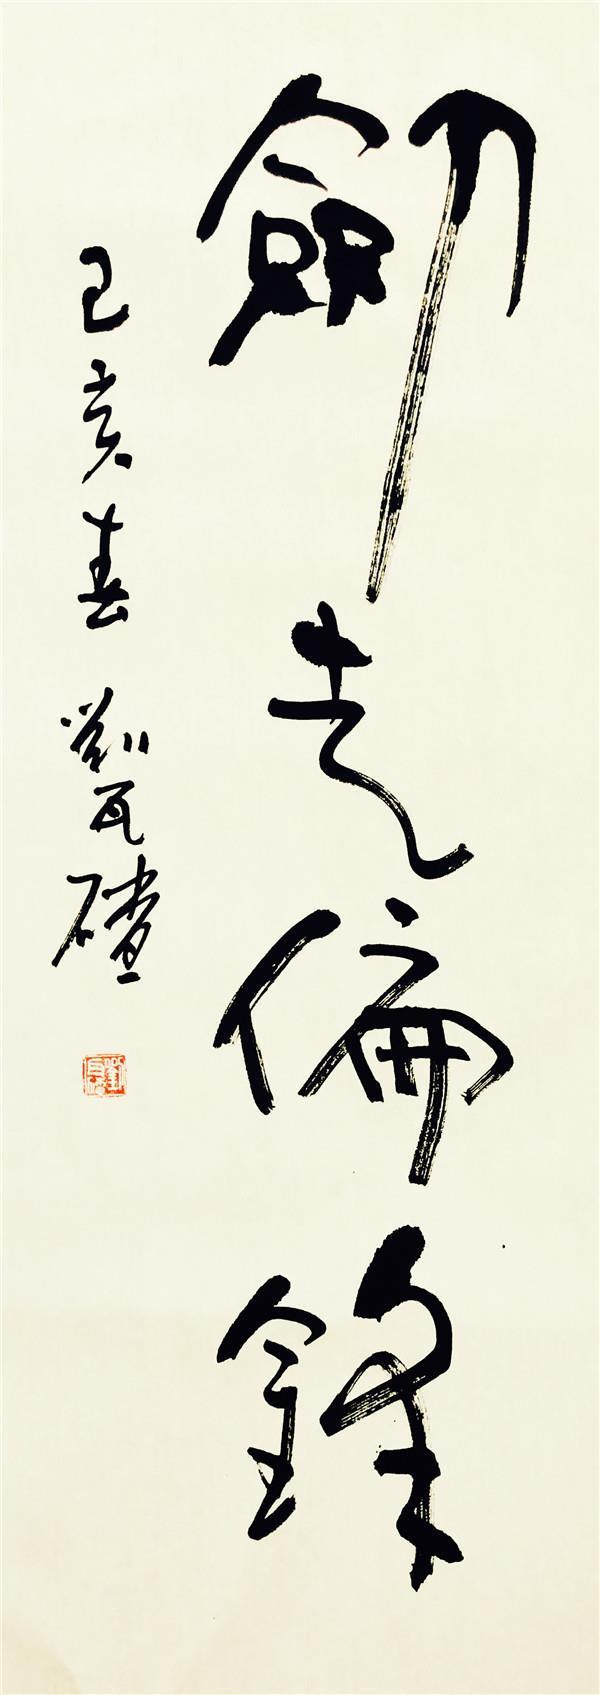 劒走偏鋒
己亥春 劉瓦碴